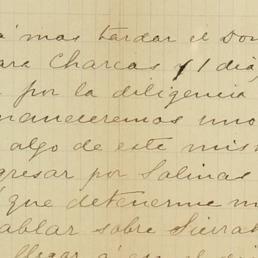 á mas tardar el Dom
para Charcas y 1 dia,
por la diligencia
mandaremos uno
algo de este mis
gresar por Salinas
que detenerme m
ablar sobre Sierra
llegar á